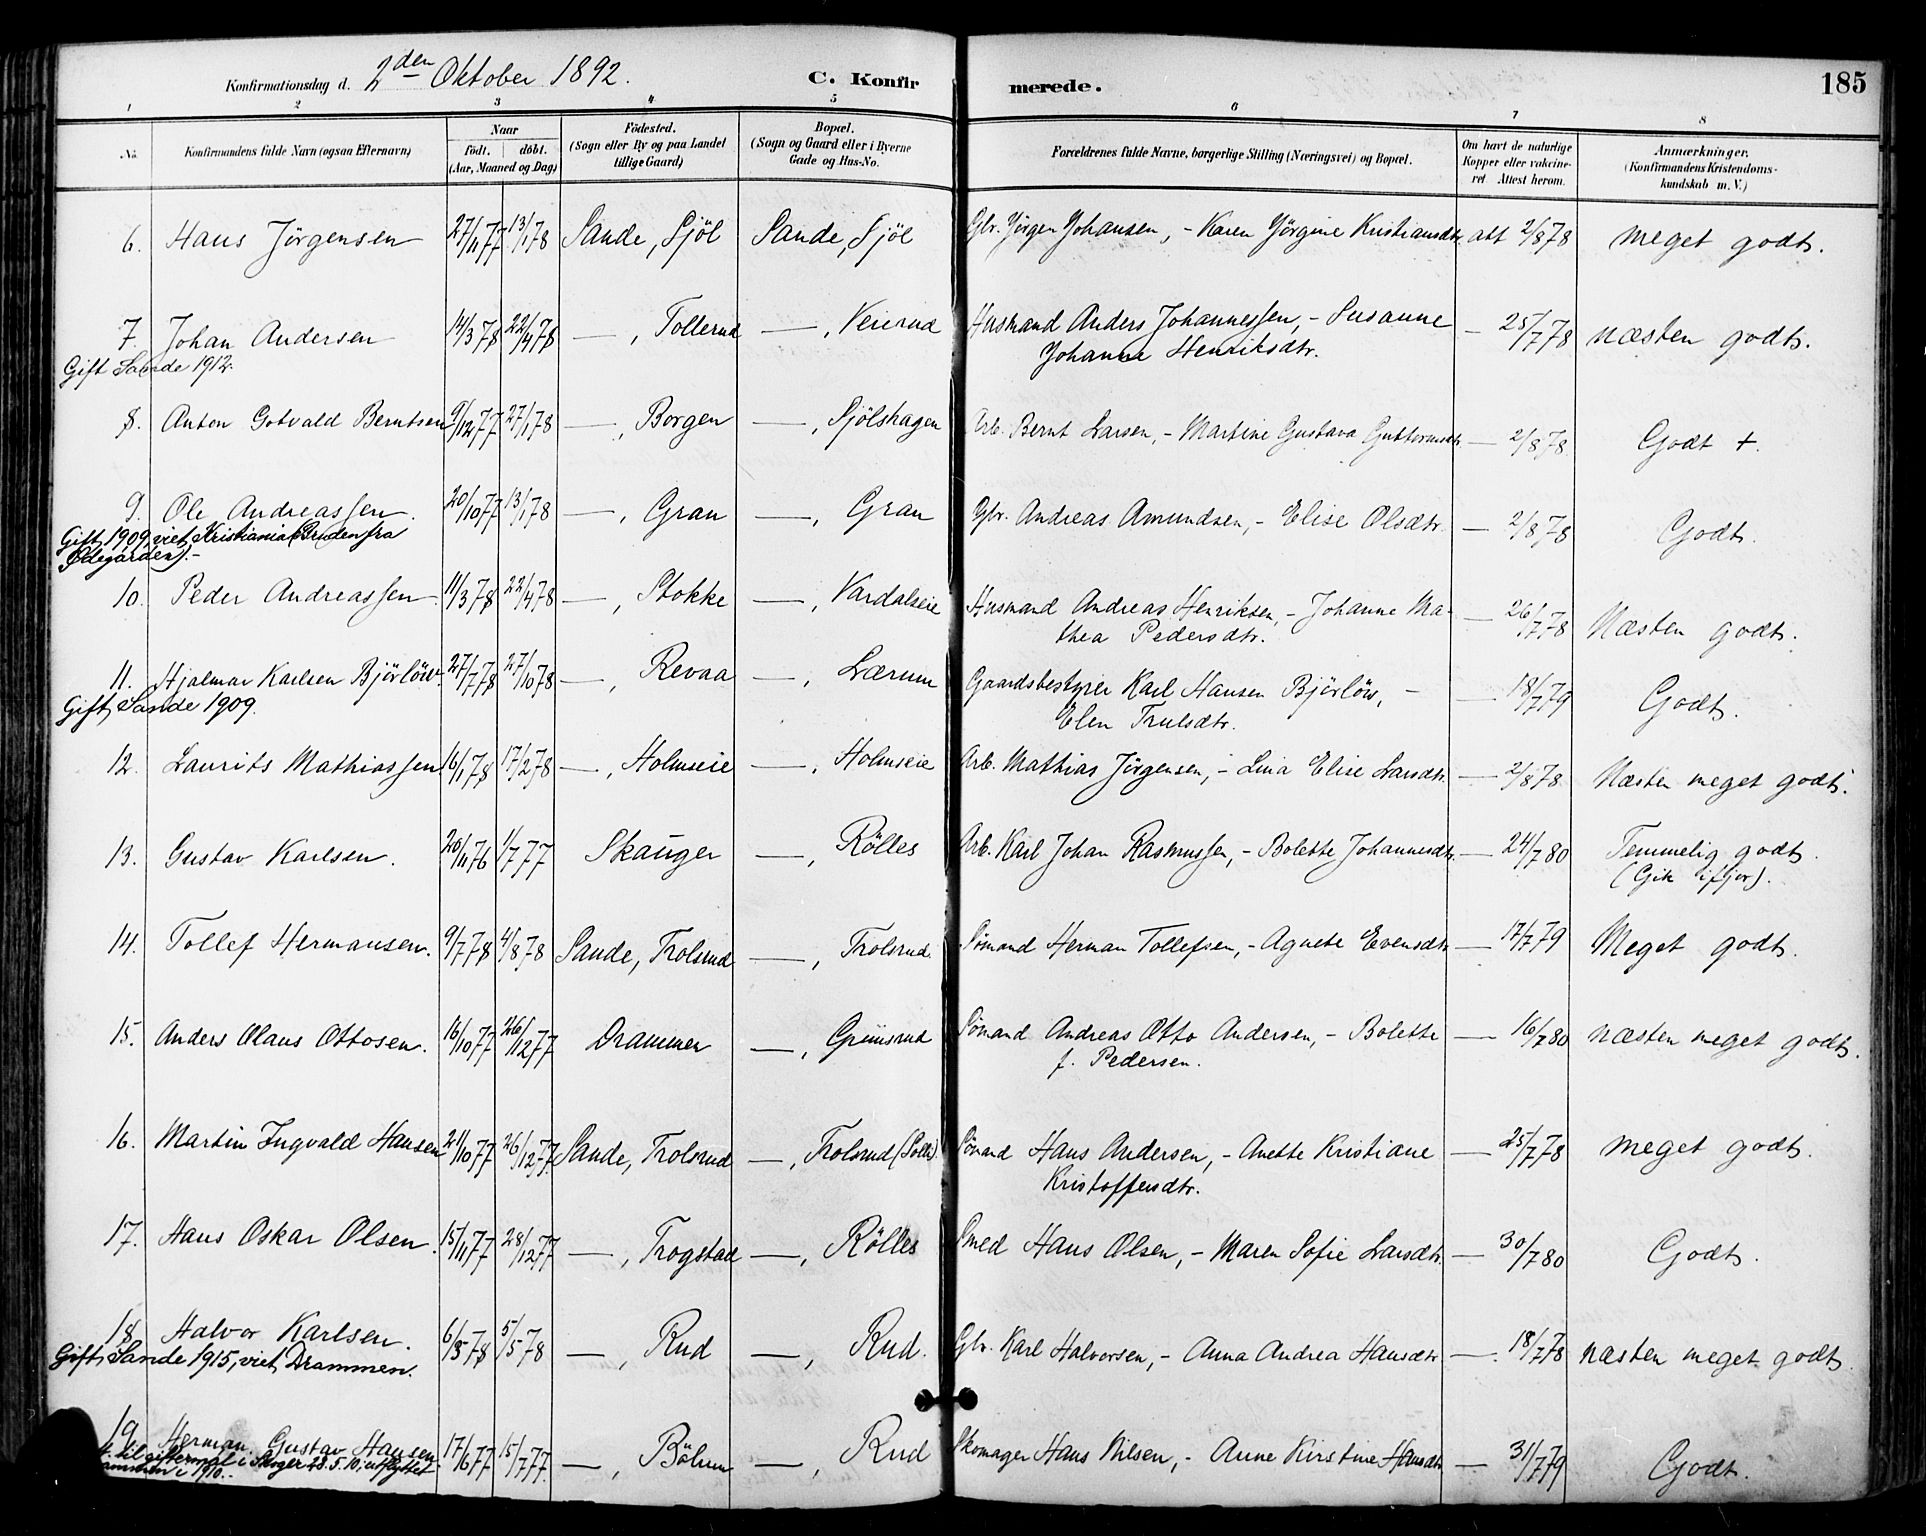 Konfirmationsdag d. 2den Oktober 1892. C. Konfirmerede. 185
1 2 3 4 5 6 7 8
No. Konfirmandens fulde Navn (ogsaa Efternavn) Naar födt. döbt. (Aar, Maaned og Dag) Födested. (Sogn eller By og paa Landet tillige Gaard) Bopæl. (Sogn og Gaard eller i Byerne Gade og Hus-No. Forældrenes fulde Navne, borgerlige Stilling (Næringsvei) og Bopæl. Om havt de naturlige Kopper eller vakcineret Attest herom. Anmærkninger. (Konfirmandens Kristendomskundskab m. V.)
6. Hans Jörgensen 27/11 77 13/1 78 Sande, Sjöl Sande, Sjöl Gbr. Jörgen Johansen, - Karen Jörgine Kristiansdtr. att 2/8 78 meget godt.
7. Johan Andersen 14/3 78 22/4 78 — , Tollerud — , Veierud Husmand Anders Johannessen, - Susanne — 25/7 78 næsten godt.
Johanne Henriksdtr.
Gift Sande 1912.
8. Anton Gotvald Berntsen 9/12 77 27/1 78 — , Borgen — , Sjölshagen Arb. Bernt Larsen, - Martine Gustava Guttormsdtr. — 2/8 78 Godt +.
9. Ole Andreassen. 20/10 77 13/1 78 — , Gran — , Gran Gbr. Andreas Amundsen, - Elise Olsdtr. — 2/8 78 Godt.
Gift 1909, viet Kristiania (Bruden fra
Ödegården).-
10. Peder Andreassen. 11/3 78 22/4 78 — , Stokke — , Vardaleie Husmand Andreas Henriksen, - Johanne Ma- — 26/7 78 Næsten godt.
thea Pedersdtr.
11. Hjalmar Karlsen Björlöw. 27/7 78 27/10 78 — , Revaa — , Lærum Gaardsbestyrer Karl Hansen Björlöw, - — 18/7 79 Godt.
Elen Trulsdtr.
Gift Sande 1909.
12. Laurits Mathiassen. 16/1 78 17/2 78 — , Holmseie — , Holmseie Arb. Mathias Jörgensen, - Lina Elise Larsdtr. — 2/8 78 Næsten meget godt.
13. Gustav Karlsen. 26/11 76 1/7 77 Skauger — , Rölles Arb. Karl Johan Rasmussen, - Bolette Johannesdtr. — 24/7 80 Temmelig godt.
(Gik ifjor).
14. Tollef Hermansen. 9/7 78 4/8 78 Sande, Trolsrud — , Trolsrud Sömand Herman Tollefsen, - Agnete Evensdtr. — 17/7 79 Meget godt.
15. Anders Olaus Ottosen. 16/10 77 26/12 77 Drammen — , Grimsrud Sömand Andreas Otto Andersen, - Bolette — 16/7 80 næsten meget godt.
f. Pedersen.
16. Martin Ingvald Hansen 21/10 77 26/12 77 Sande, Trolsrud — , Trolsrud Sömand Hans Andersen, - Anette Kristiane — 25/7 78 meget godt.
Kristoffersdtr.
17. Hans Oskar Olsen. 15/11 77 28/12 77 — , Trogstad — , Rölles Smed Hans Olsen, - Maren Sofie Larsdtr. — 30/7 80 Godt.
18. Halvor Karlsen. 6/3 78 5/5 78 — , Rud — , Rud. Gbr. Karl Halvorsen, - Anna Andrea Hansdtr. — 18/7 78 næsten meget godt.
Gift Sande 1915, viet Drammen.
19. Herman Gustav Hansen 17/6 77 15/7 77. — , Bölum — , Rud Skomager Hans Nilsen, - Anne Kirstine Hansdtr. — 31/7 79 Godt.
til giftermål i Skoger 28.5.10, utflyttet
i 1910.